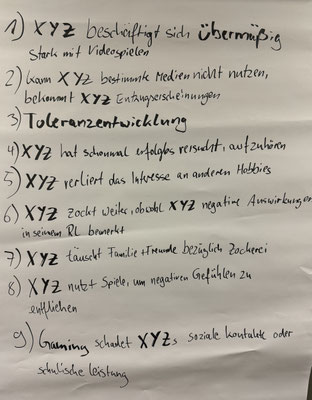 1) XYZ beschäftigt sich übermäßig
stark mit Videospielen
2) Kann XYZ bestimmte Medien nicht nutzen,
bekommt XYZ Entzugserscheinungen
3) Toleranzentwicklung
4) XYZ hat schonmal erfolglos versucht, aufzuhören
5) XYZ verliert das Interesse an anderen Hobbies
6) XYZ zockt weiter, obwohl XYZ negative Auswirkungen
in seinem RL bemerkt
7) XYZ täuscht Familie + Freunde bezüglich Zockerei
8) XYZ nutzt Spiele, um negativen Gefühlen zu
entfliehen
9) Gaming schadet XYZs soziale Kontakte oder
schulische Leistung